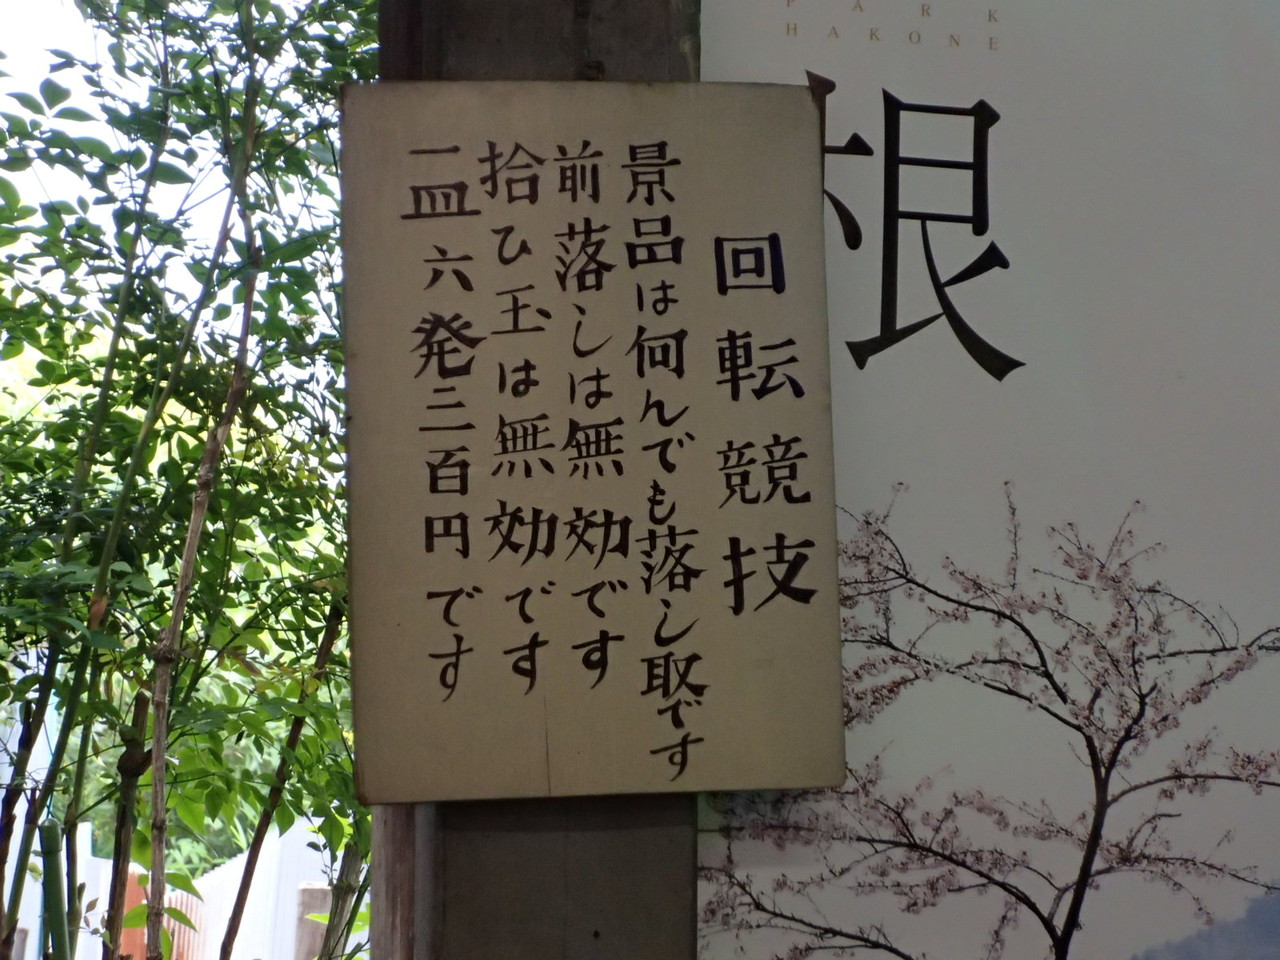 回転競技
景品は何んでも落し取です
前落しは無効です
拾ひ玉は無効です
一皿六発三百円です
PARK
HAKONE
根